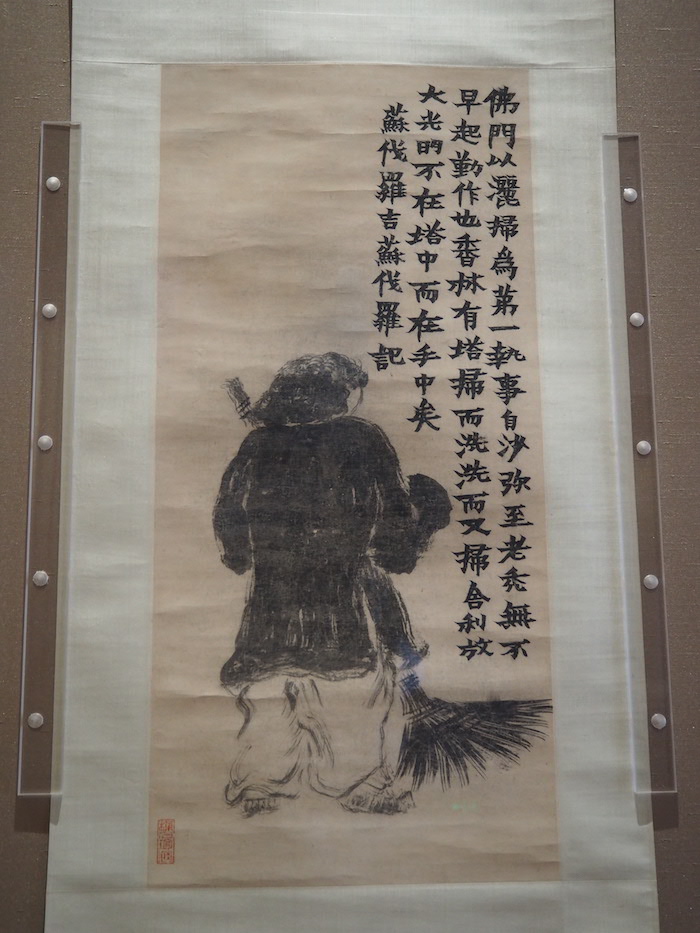 佛門以灑掃爲第一執事自沙弥至老秃無不
早起勤作也香林有塔掃而洗洗而又掃舍利放
大光眀不在塔中而在手中矣
蘇伐羅吉蘇伐羅記